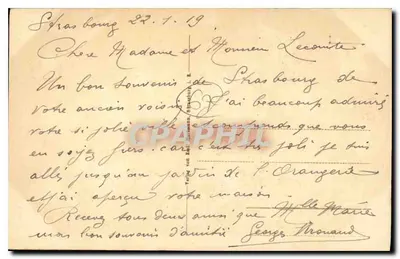 Strasbourg 22.1.19
Chere Madame et Monsieur Lecointe
Un bon souvenir de Strasbourg de
votre ancien voisin J'ai beaucoup admiré
votre si jolie ville et comprends que vous
en soyez fiers car c'est très joli je suis
allé jusqu'au jardin de l'Orangerie
et j'ai aperçu votre maison.
Recevez tous deux ainsi que Melle Marie
mon bon souvenir d'amitié Georges
CPAPHIL